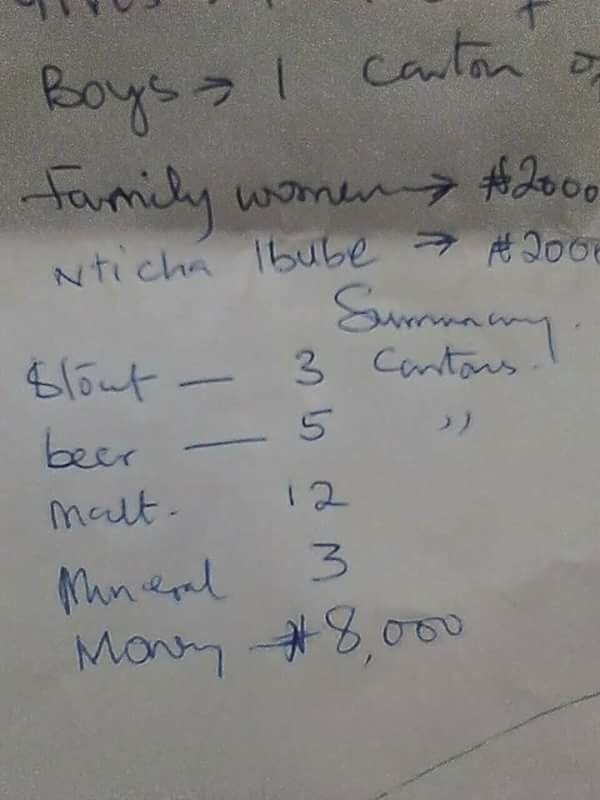 Boys → 1 Carton
Family women → ₦2000
Nticha Ibube → ₦2000
Summary.
Stout — 3 Cartons.
beer — 5 ,,
Malt. 12
Mineral 3
Money ₦8,000